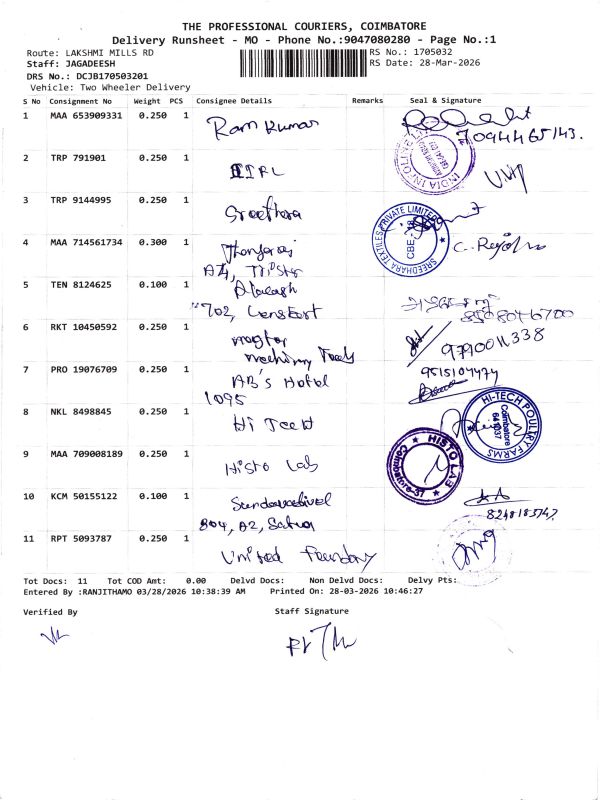 THE PROFESSIONAL COURIERS, COIMBATORE
Delivery Runsheet - MO - Phone No.:9047080280 - Page No.:1
Route: LAKSHMI MILLS RD
RS No.: 1705032
Staff: JAGADEESH
RS Date: 28-Mar-2026
DRS No.: DCJB170503201
Vehicle: Two Wheeler Delivery
S No Consignment No Weight PCS Consignee Details Remarks Seal & Signature
1 MAA 653909331 0.250 1 Ram Kumar
7094465143.
INDIA
2 TRP 791901 0.250 1
3 TRP 9144995 0.250 1 Sreethara
SREEDHARA TEXTILES PRIVATE LIMITED
CBE
4 MAA 714561734 0.300 1
A4,
5 TEN 8124625 0.100 1
702,
6 RKT 10450592 0.250 1
9790011338
7 PRO 19076709 0.250 1 AB's Hotel
1095
9515104474
8 NKL 8498845 0.250 1 Hi Tech
HI-TECH POULTRY FARMS
Coimbatore
641037
9 MAA 709008189 0.250 1 Histo Lab
HISTO LAB
Coimbatore-37
10 KCM 50155122 0.100 1 Sundaravadivel
804, A2,
8248183747
11 RPT 5093787 0.250 1 United Foundry
Tot Docs: 11 Tot COD Amt: 0.00 Delvd Docs: Non Delvd Docs: Delvy Pts:
Entered By :RANJITHAMO 03/28/2026 10:38:39 AM Printed On: 28-03-2026 10:46:27
Verified By
Staff Signature